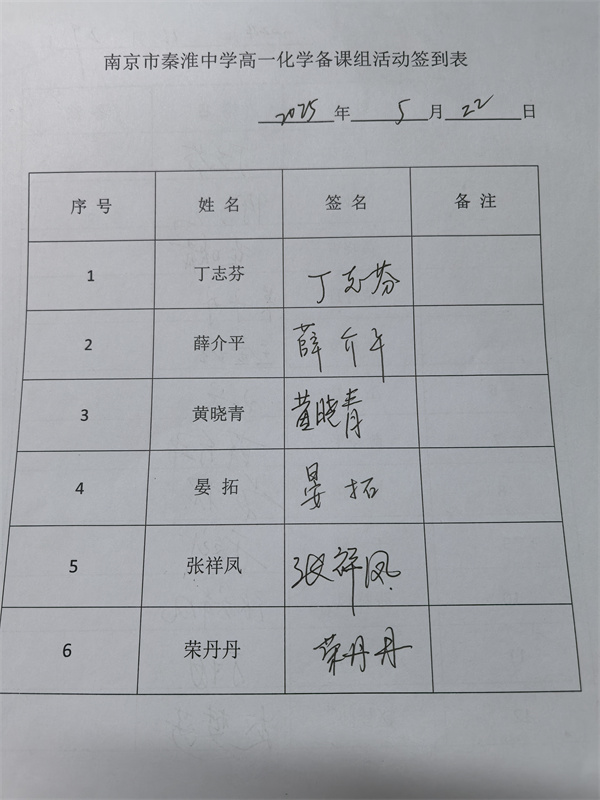 南京市秦淮中学高一化学备课组活动签到表
2025年 5月 22日
序号 姓名 签名 备注
1 丁志芬 丁志芬
2 薛介平 薛介平
3 黄晓青 黄晓青
4 晏拓 晏拓
5 张祥凤 张祥凤
6 荣丹丹 荣丹丹